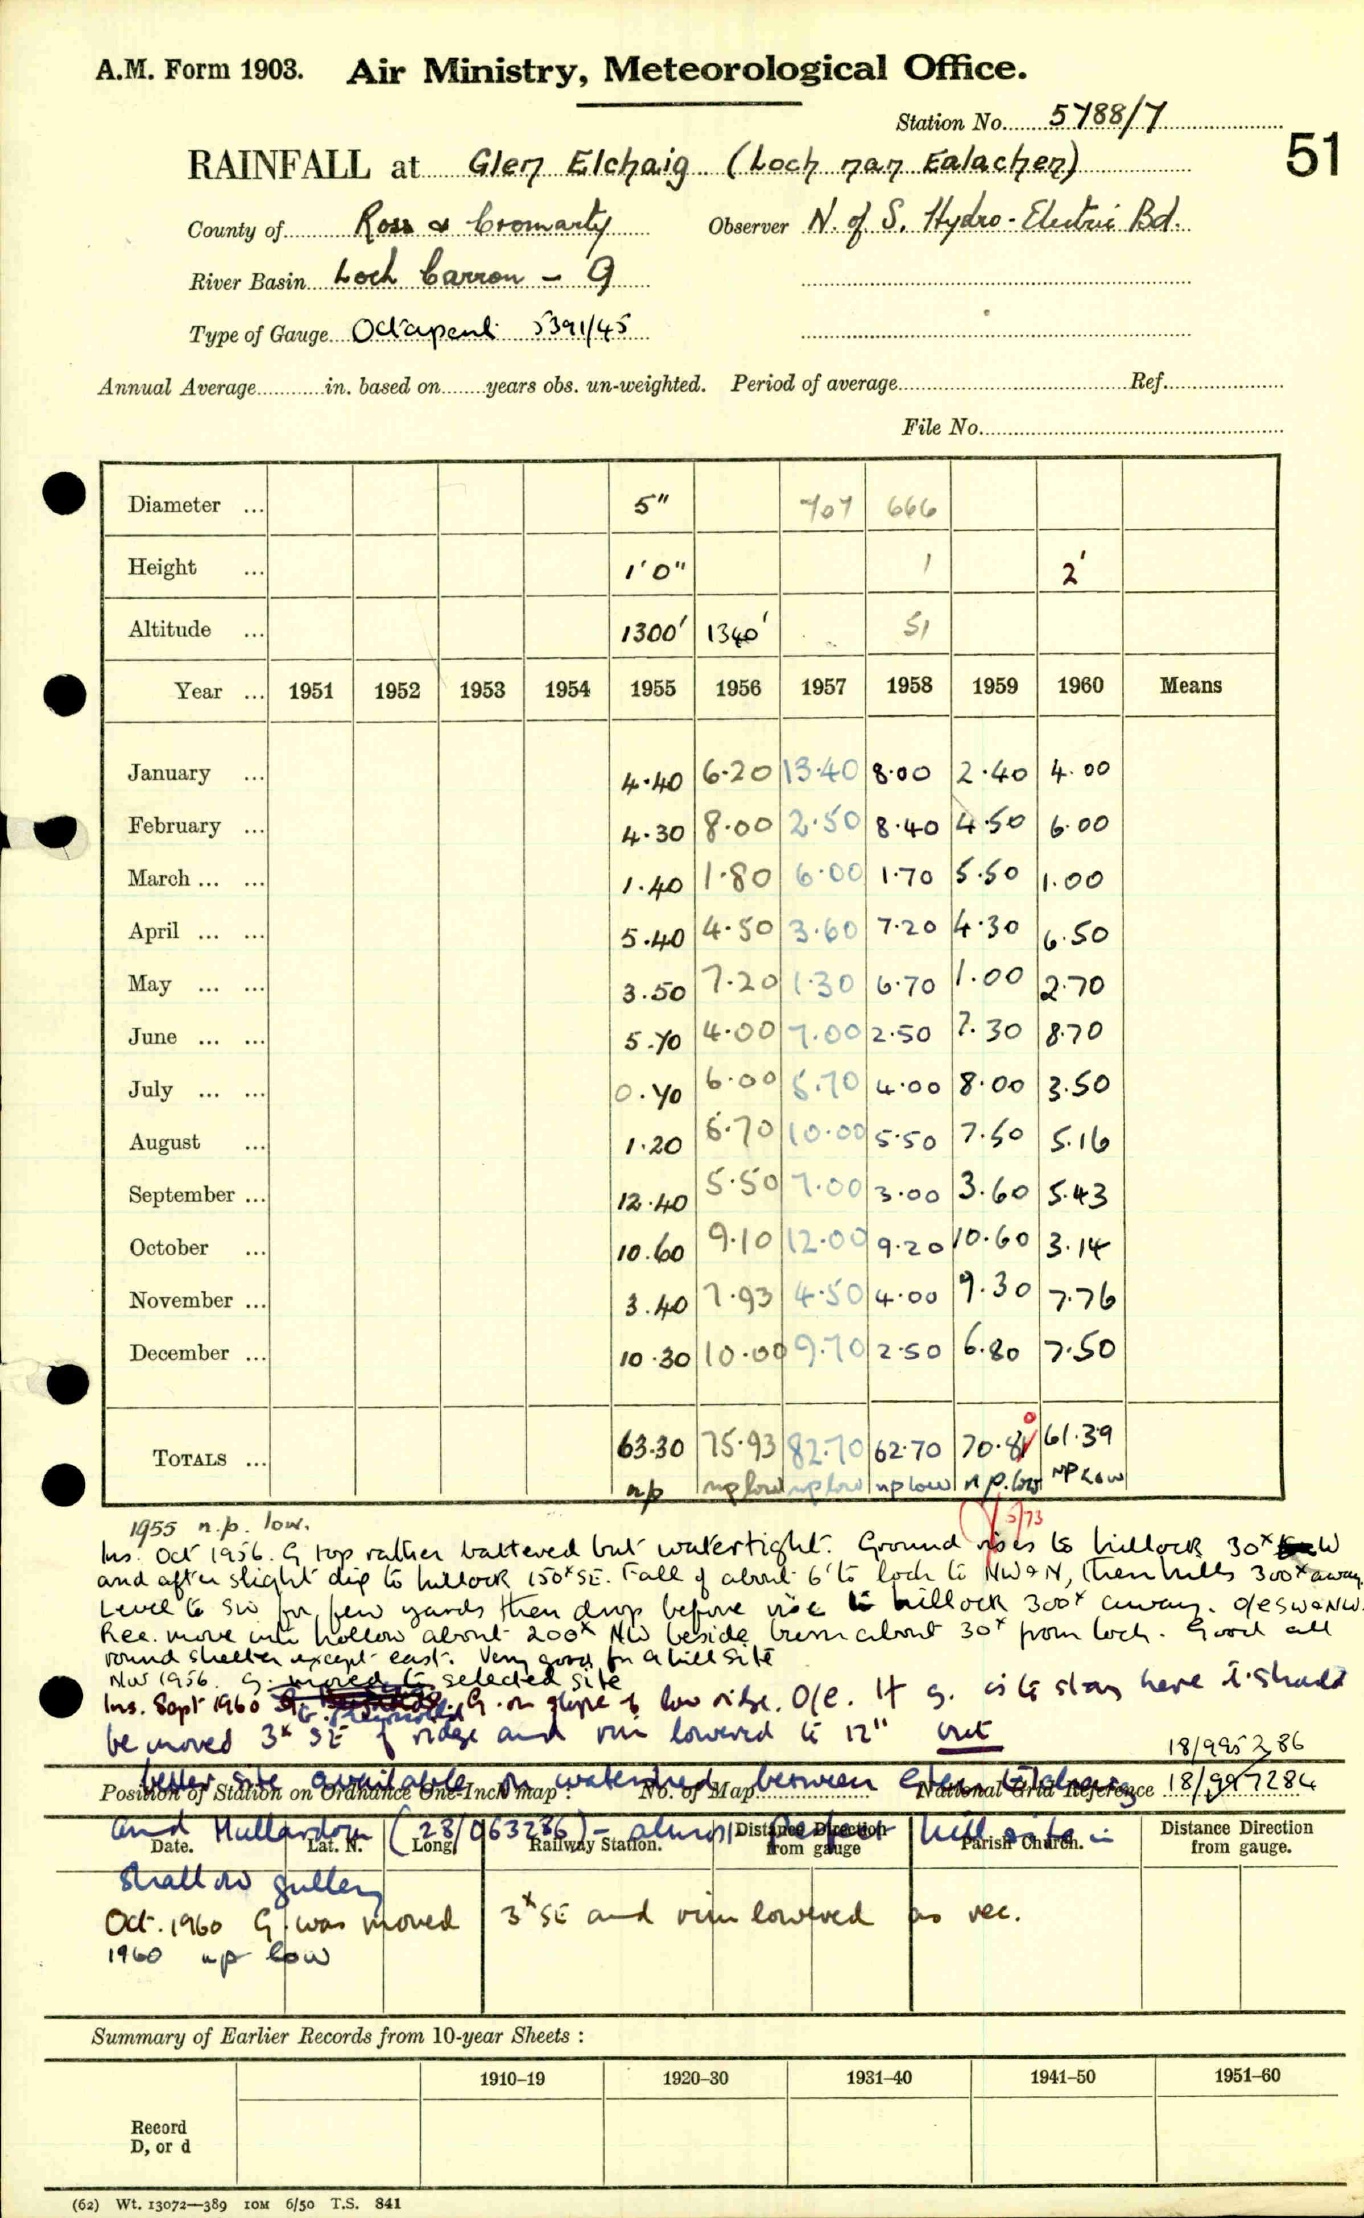 A.M. Form 1903. Air Ministry, Meteorological Office.
Station No. 5788/7
51
RAINFALL at Glen Elchaig (Loch nan Ealachen)
County of Ross & Cromarty Observer N. of S. Hydro-Electric Bd.
River Basin Loch Carron - 9
Type of Gauge Octapent 5391/45
Annual Average in. based on years obs. un-weighted. Period of average Ref.
File No.
Diameter ... 5" 707 666
Height ... 1'0" 1 2'
Altitude ... 1300' 1340' 51
Year ... 1951 1952 1953 1954 1955 1956 1957 1958 1959 1960 Means
January ... 4.40 6.20 13.40 8.00 2.40 4.00
February ... 4.30 8.00 2.50 8.40 4.50 6.00
March ... ... 1.40 1.80 6.00 1.70 5.50 1.00
April ... ... 5.40 4.50 3.60 7.20 4.30 6.50
May ... ... 3.50 7.20 1.30 6.70 1.00 2.70
June ... ... 5.70 4.00 7.00 2.50 7.30 8.70
July ... ... 0.70 6.00 5.70 4.00 8.00 3.50
August ... 1.20 5.70 10.00 5.50 7.50 5.16
September ... 12.40 5.50 7.00 3.00 3.60 5.43
October ... 10.60 9.10 12.00 9.20 10.60 3.14
November ... 3.40 7.93 4.50 4.00 9.30 7.76
December ... 10.30 10.00 9.70 2.50 6.80 7.50
TOTALS ... 63.30 75.93 82.70 62.70 70.8 0 61.39
np np low np low np low n p. low NP Low
1955 n.p. low. 5/73
Ins. Oct 1956. G top rather battered but watertight. Ground rises to hillock 30x W
and after slight dip to hillock 150x SE. Fall of about 6' to loch to NW & N, then hills 300x away.
Level to SW for few yards then drop before rise to hillock 300x away. O/e SW & NW.
Rec. move into hollow about 200x NW beside burn about 30x from loch. Good all
round shelter except east. Very good for a hill site
Nov 1956. G. moved to selected site
Ins. Sept 1960 G. on slope of low ridge. O/e. If g. is to stay here it should
be moved 3x SE of ridge and rim lowered to 12" but
18/995286
better site available on watershed between Glen Elchaig
Position of Station on Ordnance One-Inch map: No. of Map National Grid Reference 18/997284
and Mullardoch (28/063286) - almost perfect hill site in
Date. Lat. N. Long. Railway Station. Distance Direction from gauge Parish Church. Distance Direction from gauge.
shallow gulley
Oct. 1960 G. was moved 3x SE and rim lowered as rec.
1960 np low
Summary of Earlier Records from 10-year Sheets:
1910–19 1920–30 1931–40 1941–50 1951–60
Record
D, or d
(62) Wt. 13072—389 10M 6/50 T.S. 841